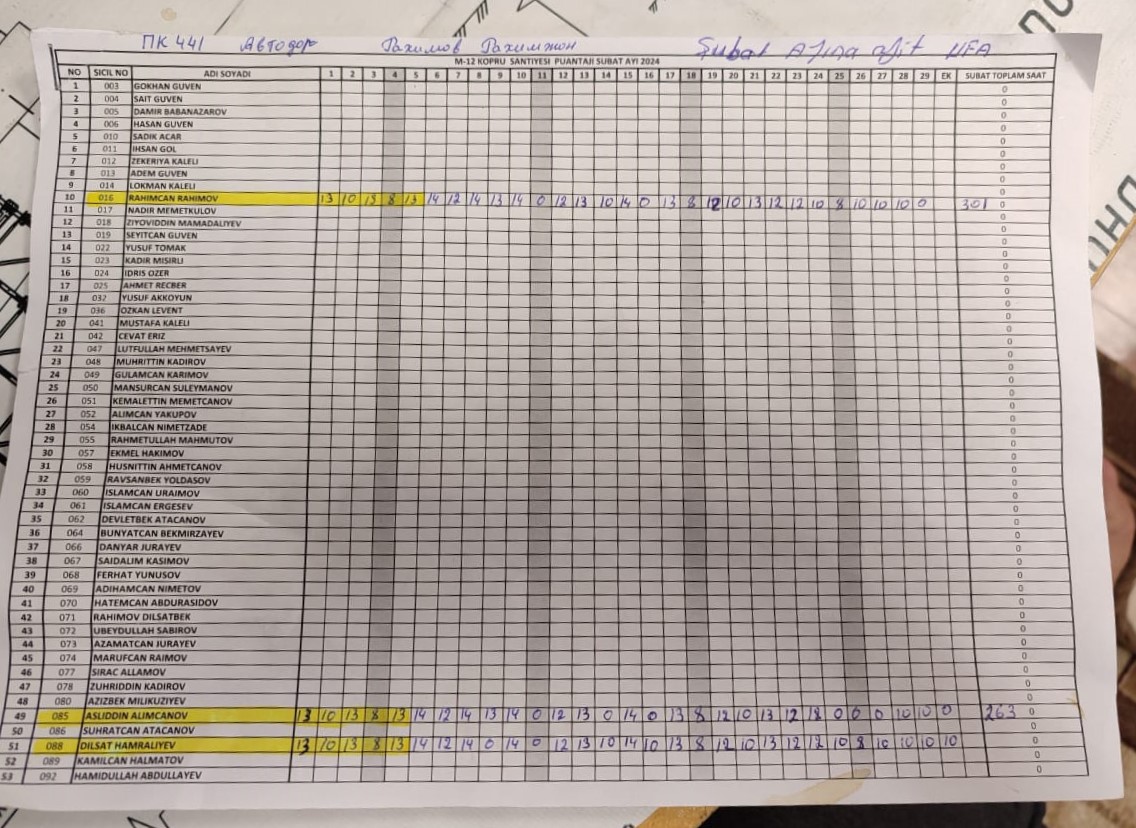 ПК 441 Автодор Рахимов Рахимжон Şubat UFA
M-12 KOPRU SANTIYESI PUANTAJI SUBAT AYI 2024
NO SICIL NO ADI SOYADI 1 2 3 4 5 6 7 8 9 10 11 12 13 14 15 16 17 18 19 20 21 22 23 24 25 26 27 28 29 EK SUBAT TOPLAM SAAT
1 003 GOKHAN GUVEN 0
2 004 SAIT GUVEN 0
3 005 DAMIR BABANAZAROV 0
4 006 HASAN GUVEN 0
5 010 SADIK ACAR 0
6 011 IHSAN GOL 0
7 012 ZEKERIYA KALELI 0
8 013 ADEM GUVEN 0
9 014 LOKMAN KALELI 0
10 016 RAHIMCAN RAHIMOV 13 10 13 8 13 14 12 14 13 14 0 12 13 10 14 0 13 8 12 10 13 12 12 10 8 10 10 10 0 301 0
11 017 NADIR MEMETKULOV 0
12 018 ZIYOVIDDIN MAMADALIYEV 0
13 019 SEYITCAN GUVEN 0
14 022 YUSUF TOMAK 0
15 023 KADIR MISIRLI 0
16 024 IDRIS OZER 0
17 025 AHMET RECBER 0
18 032 YUSUF AKKOYUN 0
19 036 OZKAN LEVENT 0
20 041 MUSTAFA KALELI 0
21 042 CEVAT ERIZ 0
22 047 LUTFULLAH MEHMETSAYEV 0
23 048 MUHRITTIN KADIROV 0
24 049 GULAMCAN KARIMOV 0
25 050 MANSURCAN SULEYMANOV 0
26 051 KEMALETTIN MEMETCANOV 0
27 052 ALIMCAN YAKUPOV 0
28 054 IKBALCAN NIMETZADE 0
29 055 RAHMETULLAH MAHMUTOV 0
30 057 EKMEL HAKIMOV 0
31 058 HUSNITTIN AHMETCANOV 0
32 059 RAVSANBEK YOLDASOV 0
33 060 ISLAMCAN URAIMOV 0
34 061 ISLAMCAN ERGESEV 0
35 062 DEVLETBEK ATACANOV 0
36 064 BUNYATCAN BEKMIRZAYEV 0
37 066 DANYAR JURAYEV 0
38 067 SAIDALIM KASIMOV 0
39 068 FERHAT YUNUSOV 0
40 069 ADIHAMCAN NIMETOV 0
41 070 HATEMCAN ABDURASIDOV 0
42 071 RAHIMOV DILSATBEK 0
43 072 UBEYDULLAH SABIROV 0
44 073 AZAMATCAN JURAYEV 0
45 074 MARUFCAN RAIMOV 0
46 077 SIRAC ALLAMOV 0
47 078 ZUHRIDDIN KADIROV 0
48 080 AZIZBEK MILIKUZIYEV 0
49 085 ASLIDDIN ALIMCANOV 13 10 13 8 13 14 12 14 13 14 0 12 13 0 14 0 13 8 12 10 13 12 0 0 10 10 0 263 0
50 086 SUHRATCAN ATACANOV 0
51 088 DILSAT HAMRALIYEV 13 10 13 8 13 14 12 14 0 14 0 12 13 10 14 10 13 8 12 10 13 12 12 10 8 10 10 10 10 0
52 089 KAMILCAN HALMATOV 0
53 092 HAMIDULLAH ABDULLAYEV 0